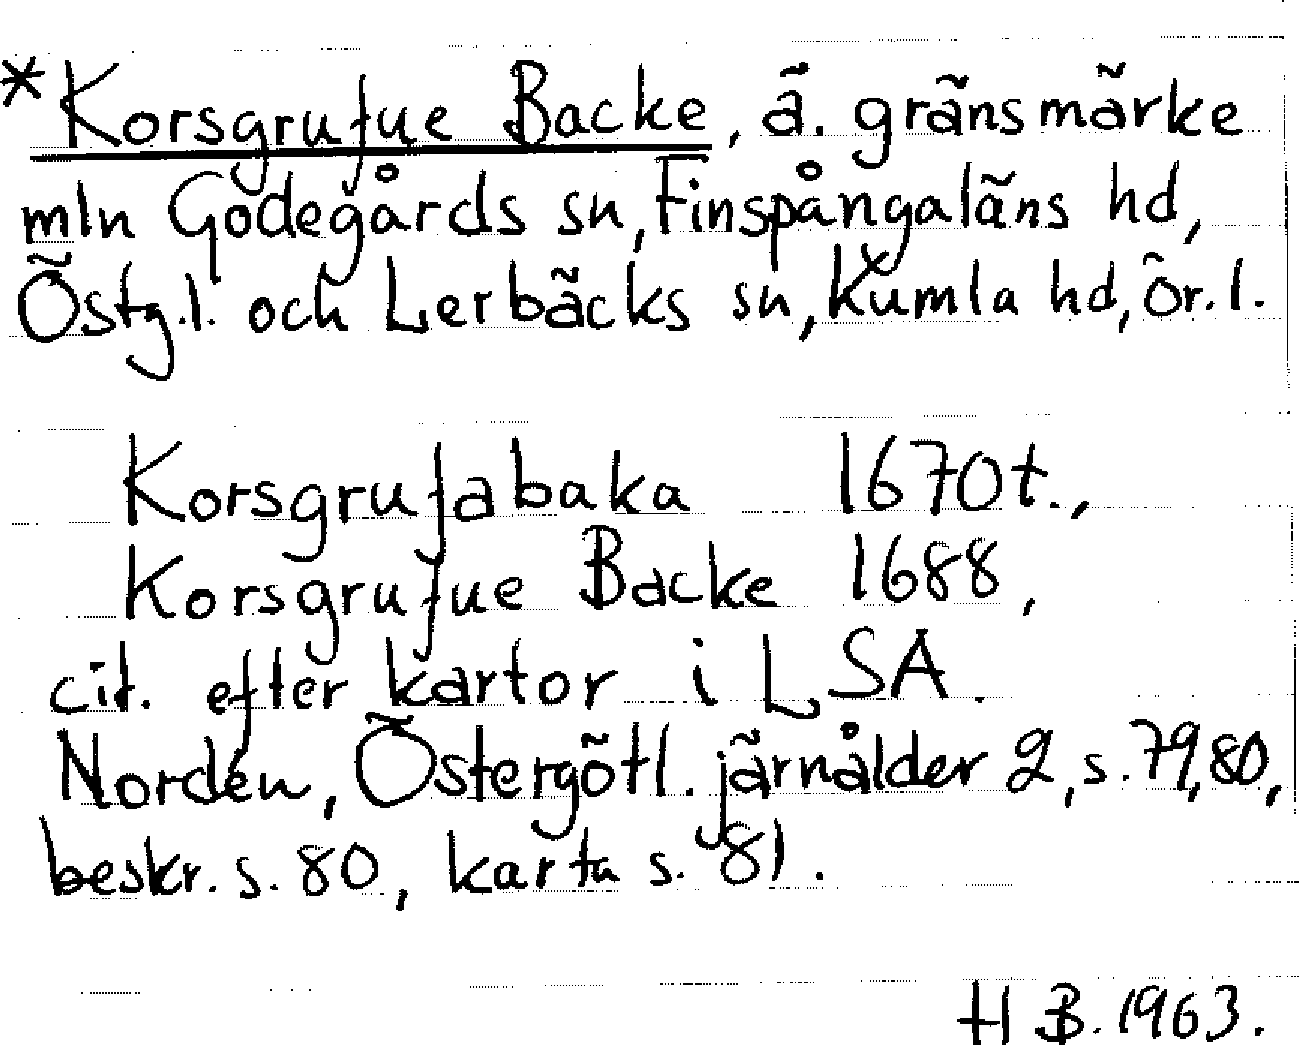 *Korsgrufue Backe, ä. gränsmärke
mln Godegårds sn, Finspångaläns hd,
Östg.l. och Lerbäcks sn, Kumla hd, ör.l.
Korsgrufabaka 1670t.,
Korsgrufue Backe 1688,
cit. efter kartor i LSA.
Nordén, Östergötl. järnålder 2, s. 79, 80,
beskr. s. 80, karta s. 81.
H B. 1963.